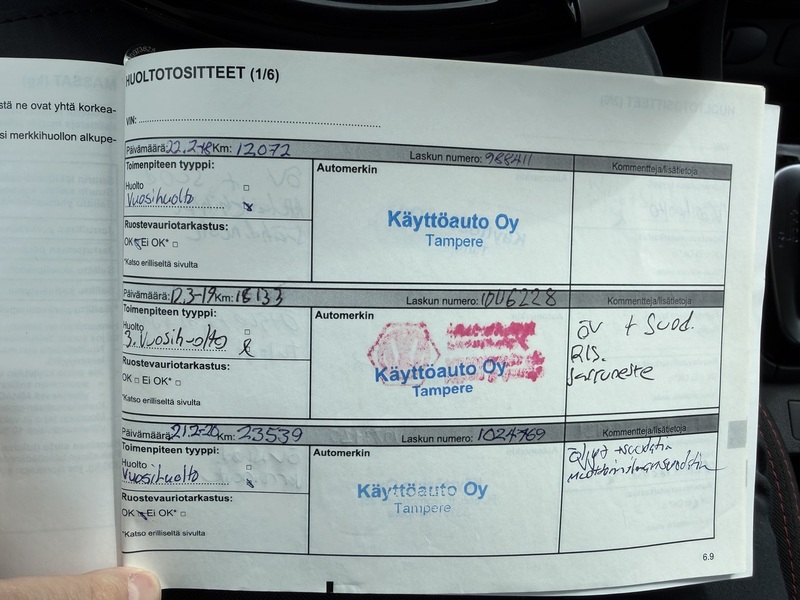 stä ne ovat yhtä korkea-
si merkkihuollon alkupe-
HUOLTOTOSITTEET (1/6)
VIN:
Päivämäärä: 22.2-18 Km: 12072 Laskun numero: 988411 Kommentteja/lisätietoja
Toimenpiteen tyyppi: Automerkin
Huolto
Vuosihuolto
Käyttöauto Oy
Tampere
Ruostevauriotarkastus:
OK Ei OK*
*Katso erilliseltä sivulta
Päivämäärä: 12.3-19 Km: 18133 Laskun numero: 1006228 Kommentteja/lisätietoja
Toimenpiteen tyyppi: Automerkin
Huolto
3. Vuosihuolto
Käyttöauto Oy
Tampere
öv + Suod.
RIS.
Jarruneste
Ruostevauriotarkastus:
OK Ei OK*
*Katso erilliseltä sivulta
Päivämäärä: 21.2-20 Km: 23539 Laskun numero: 1024769 Kommentteja/lisätietoja
Toimenpiteen tyyppi: Automerkin
Huolto
Vuosihuolto
Käyttöauto Oy
Tampere
Öljyt + suodatin
moottorinilmansuodatin
Ruostevauriotarkastus:
OK Ei OK*
*Katso erilliseltä sivulta
6.9